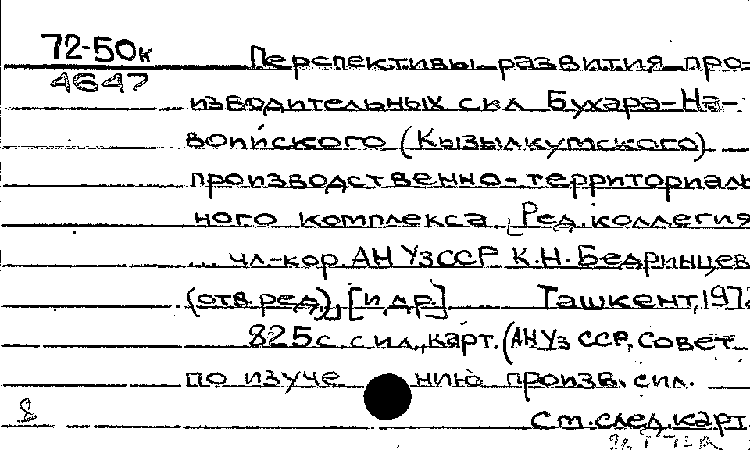 72-50к Перспективы развития про-
4647
изводительных сил Бухара-На-
воийского (Кызылкумского)
производственно-территориаль
ного комплекса Ред.коллегия
... чл-кор. АН УзССР К.Н. Бедринцев
(отв.ред.), [и др.] Ташкент, 197
825с. с ил., карт. (АН УзССР, Совет
по изуче нию произв. сил.
8 См. след. карт